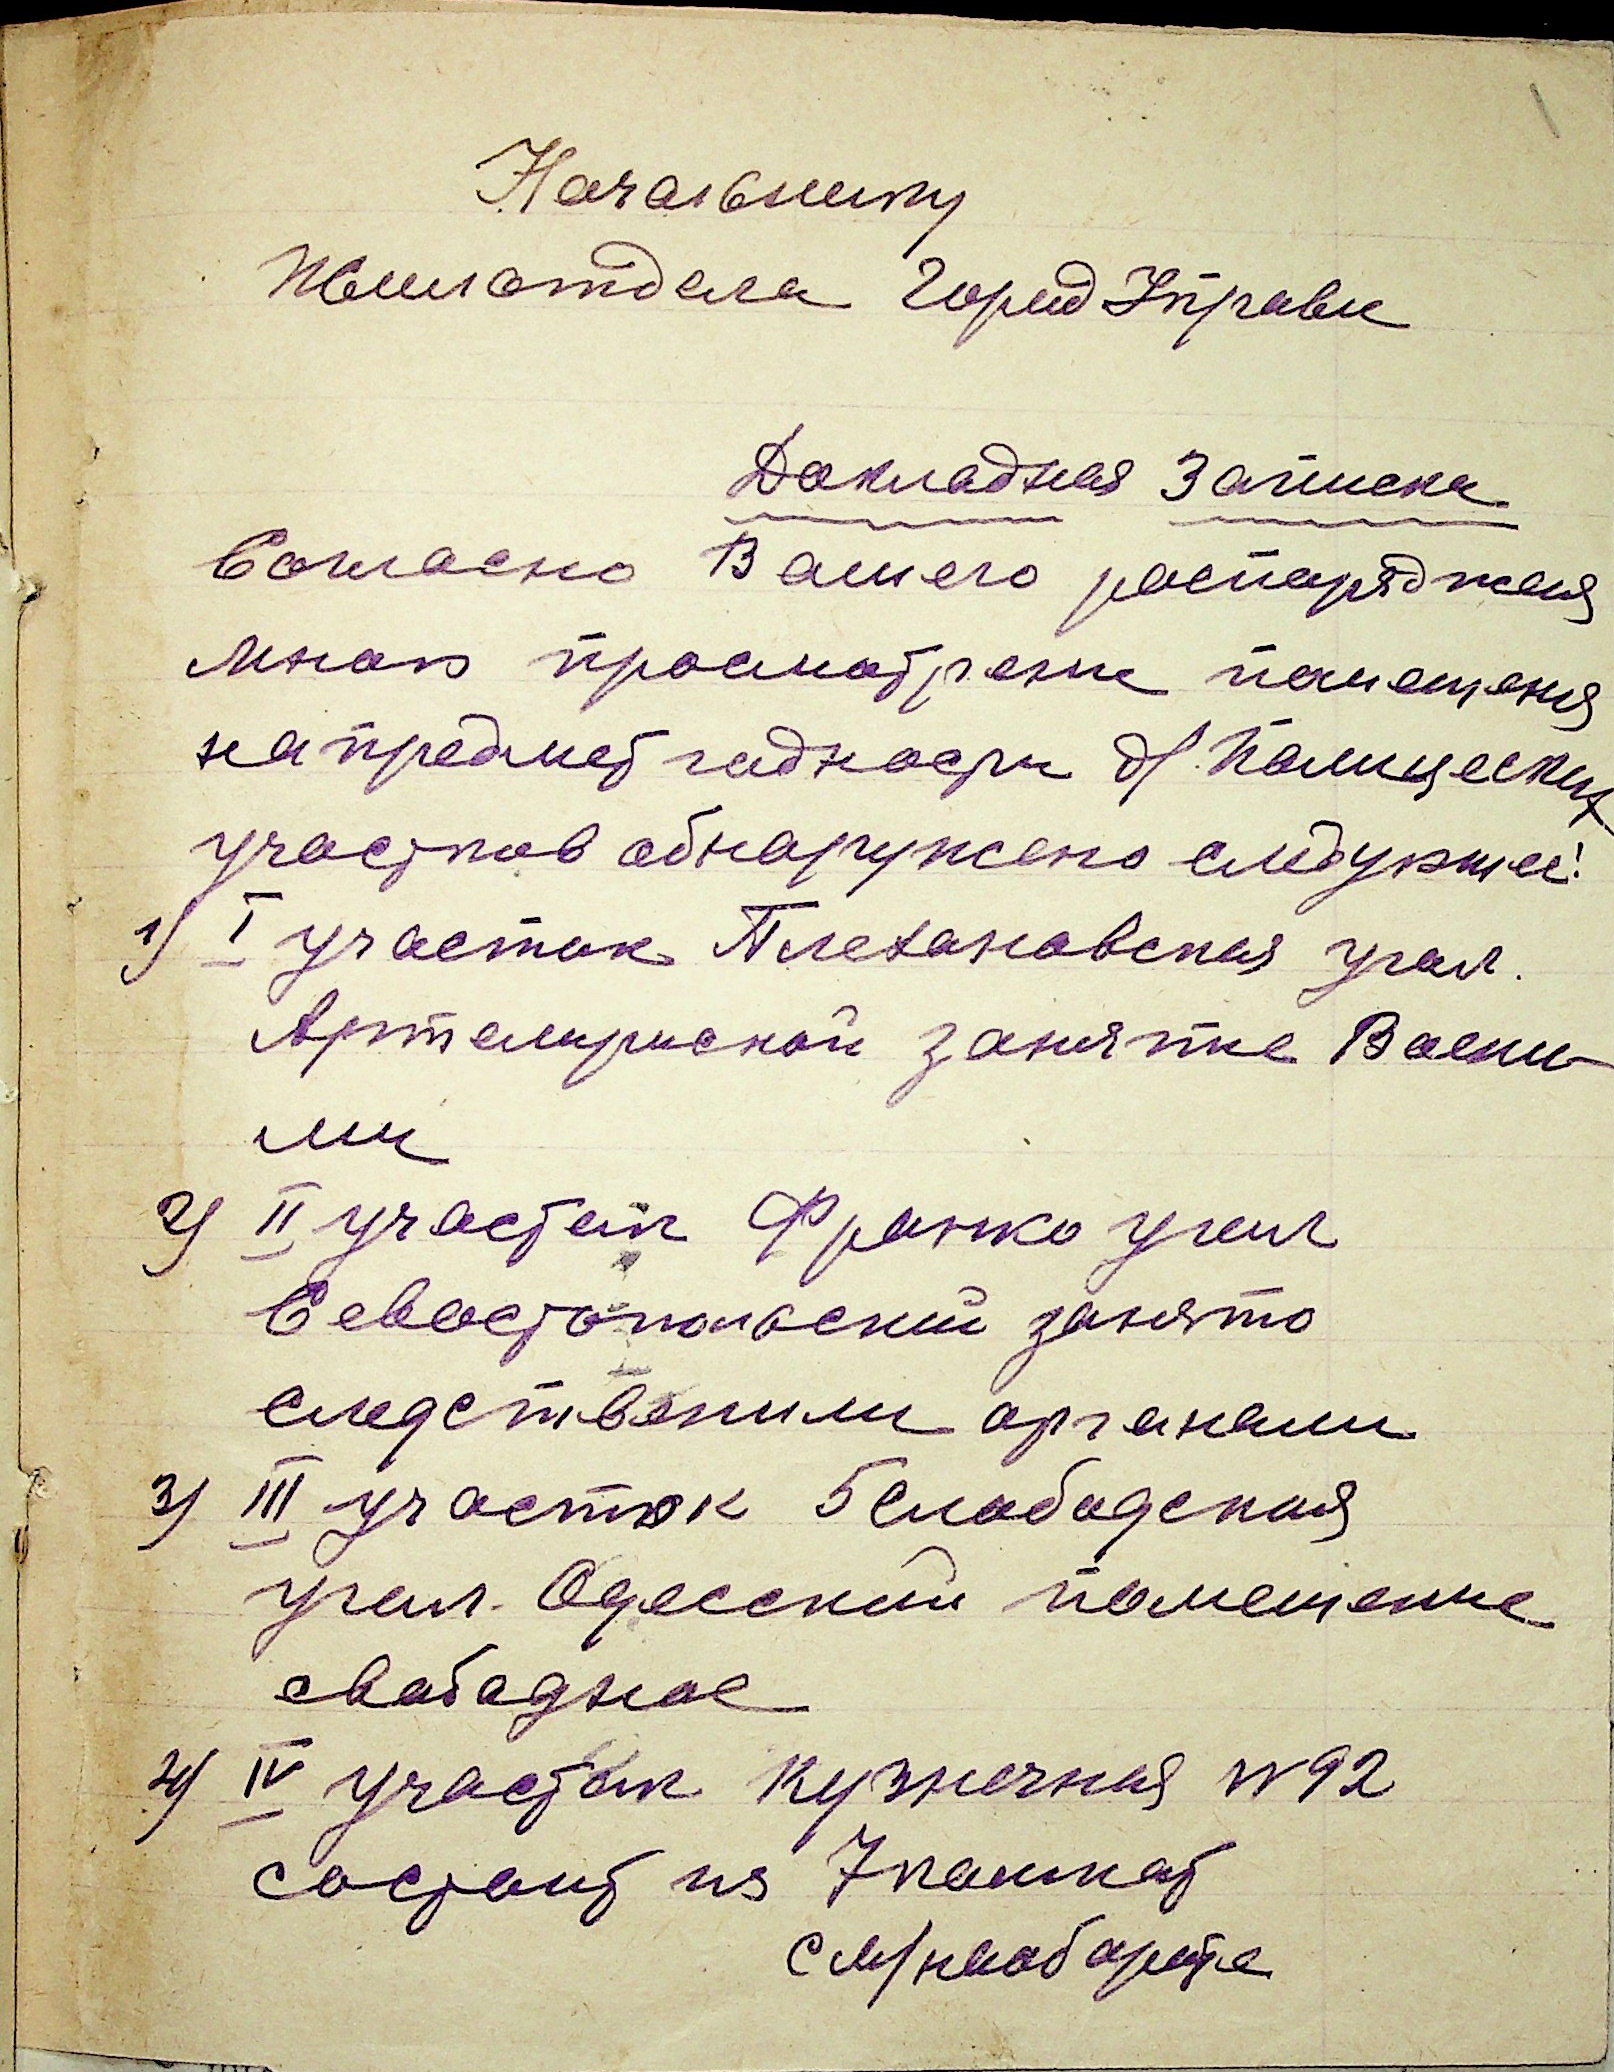 Начальнику
Жилотдела Город Управи
Докладная Записка
Согласно Вашего распоряджения
мною просмотрени помещения
на предмет годности д/. Полицеских
участков обнаружено следующее:
1) I участок Плехановская угол.
Артемириской занятие Воени-
ми
2) II участок Франко угол
Севастопольский занято
следственими органами
3) III участок 5 Слободская
угол. Одесский помещение
свободное
4) IV участок Кузнечная №92
состоит из 7 комнат
см/на обороте